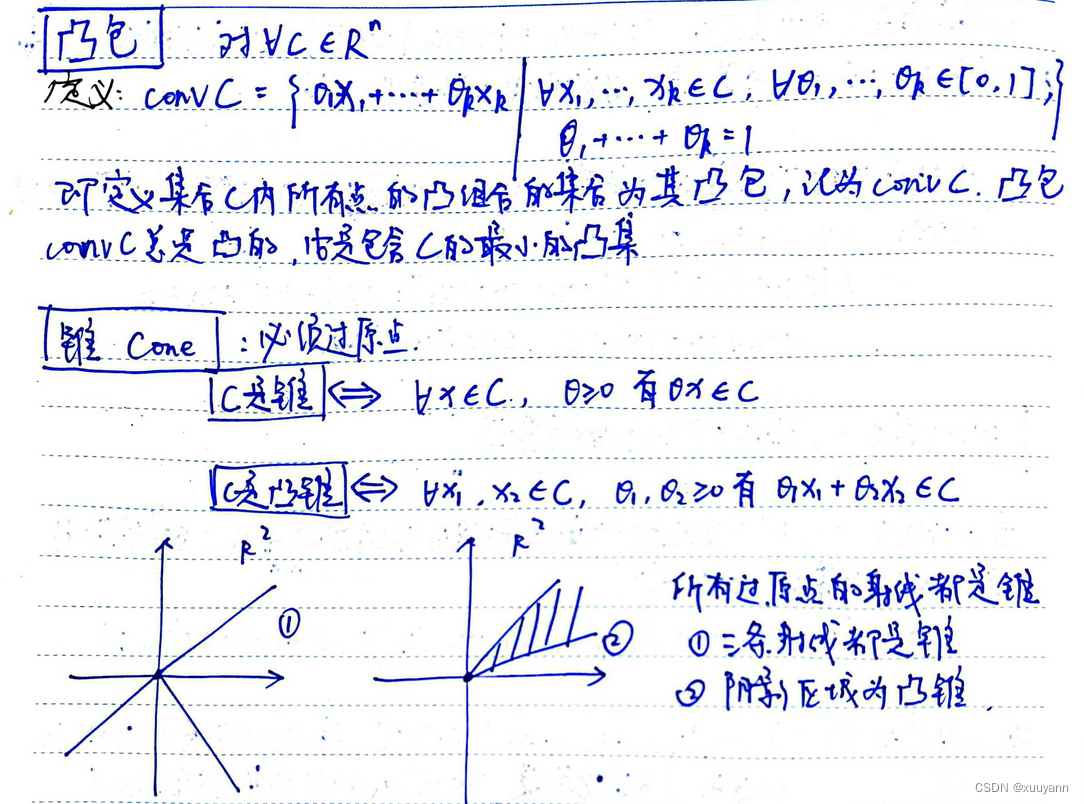 凸包 对∀C∈Rⁿ
定义: conv C = {θ₁x₁+⋯+θₖxₖ | ∀x₁,⋯,xₖ∈C; ∀θ₁,⋯,θₖ∈[0,1];}
θ₁+⋯+θₖ=1
即定义集合C内所有点的凸组合的集合为其凸包，记为conv C. 凸包
conv C总是凸的，它是包含C的最小的凸集
锥 Cone : 必须过原点.
C是锥 ⟺ ∀x∈C, θ≥0 有θx∈C
C是凸锥 ⟺ ∀x₁,x₂∈C, θ₁,θ₂≥0有 θ₁x₁+θ₂x₂∈C
R²
①
R²
②
所有过原点的射线都是锥
① 三条射线都是锥
② 阴影区域为凸锥.
CSDN @xuuyann